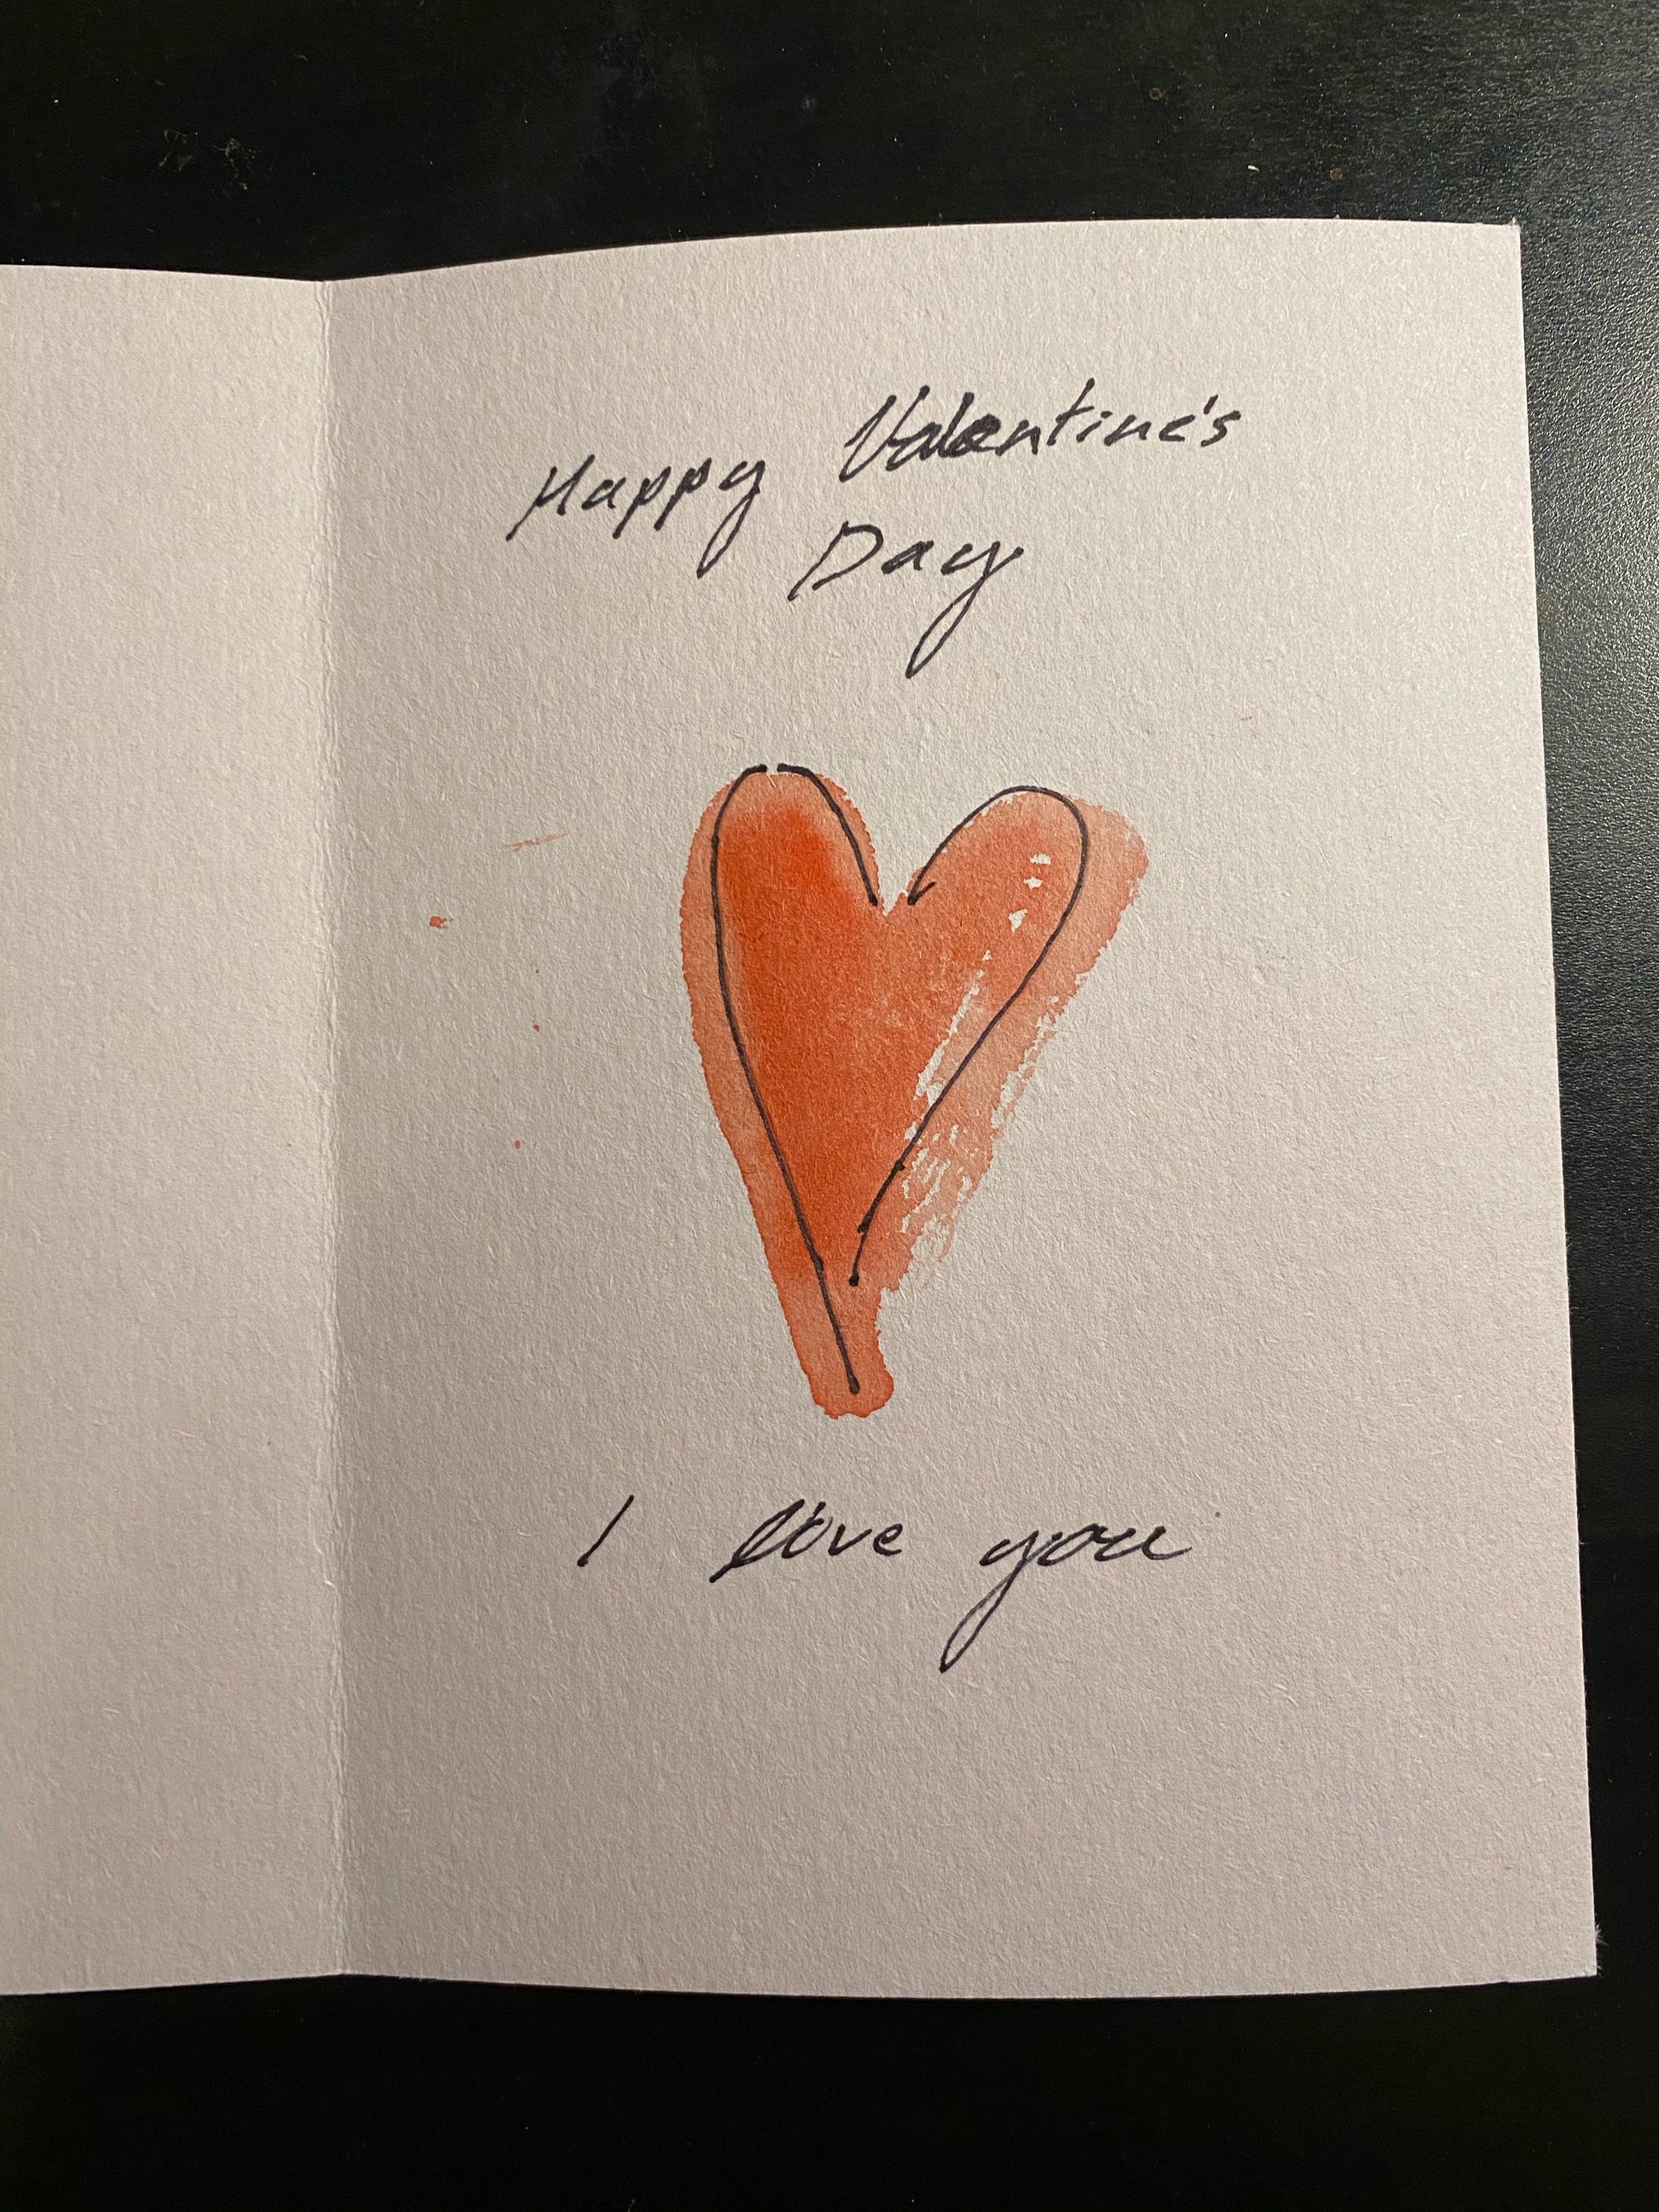 Happy Valentine's
Day
I love you